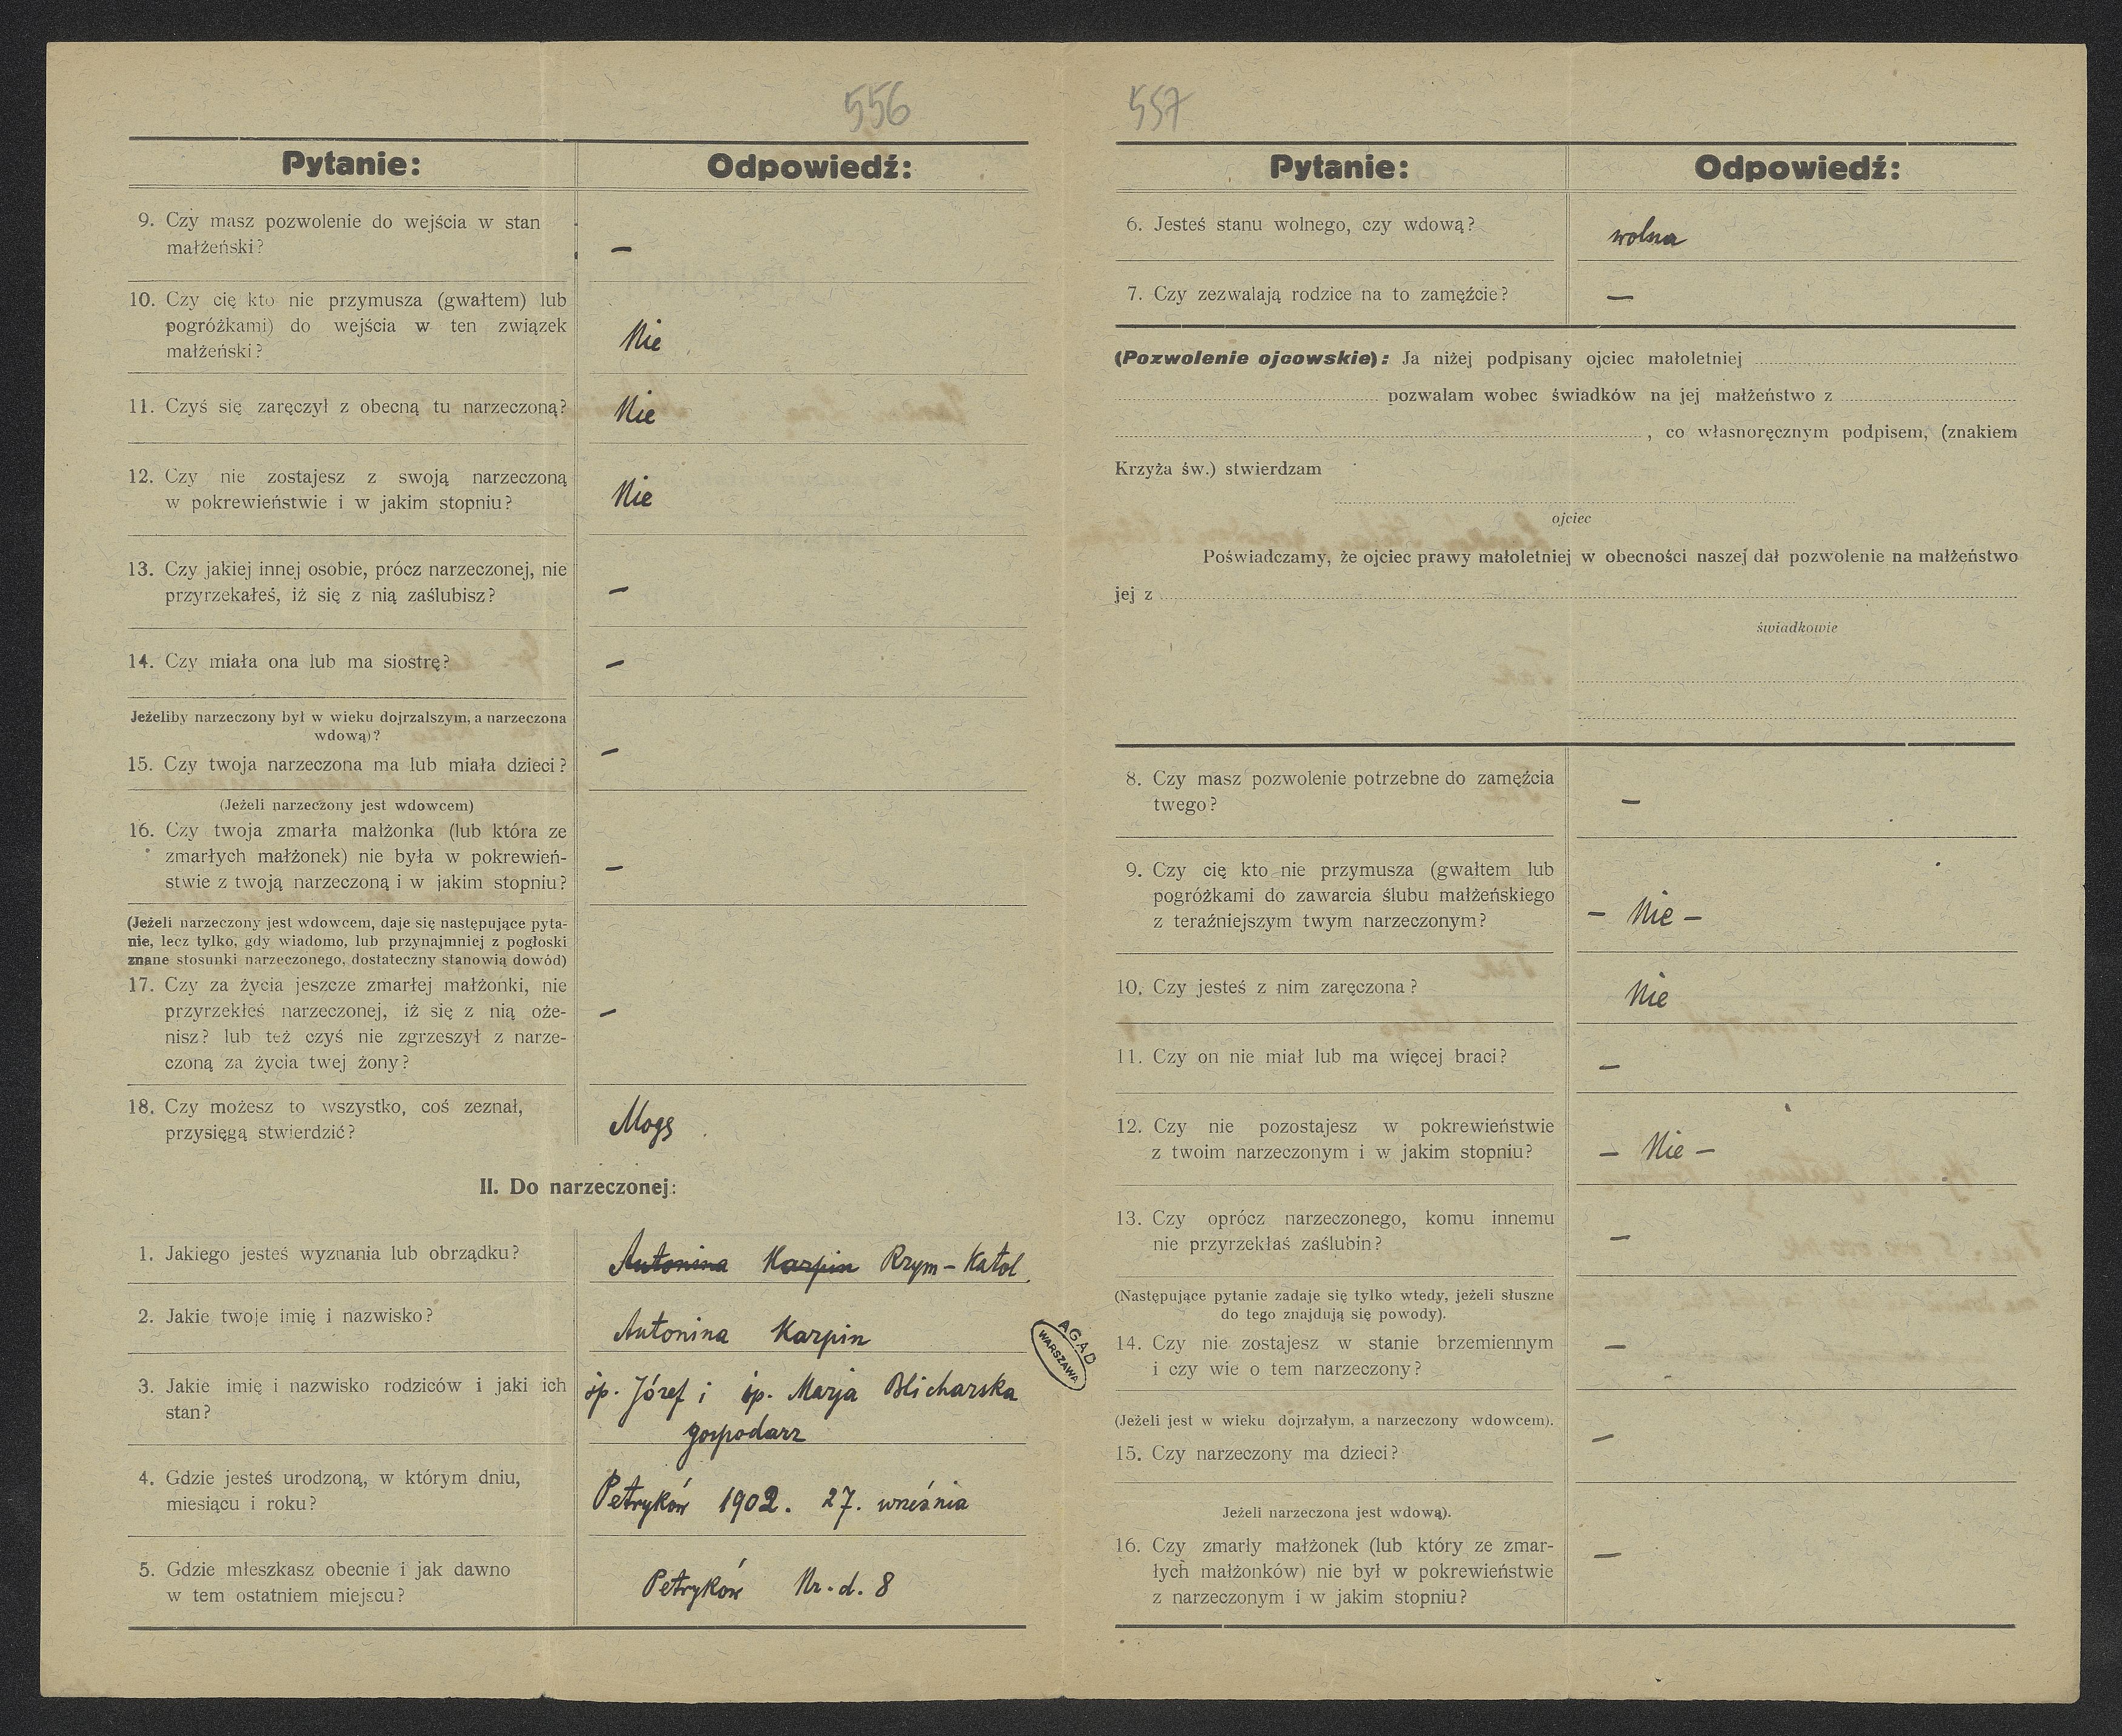 556
Pytanie: Odpowiedź:
9. Czy masz pozwolenie do wejścia w stan
małżeński?
—
10. Czy cię kto nie przymusza (gwałtem) lub
pogróżkami) do wejścia w ten związek
małżeński?
Nie
11. Czyś się zaręczył z obecną tu narzeczoną?
Nie
12. Czy nie zostajesz z swoją narzeczoną
w pokrewieństwie i w jakim stopniu?
Nie
13. Czy jakiej innej osobie, prócz narzeczonej, nie
przyrzekałeś, iż się z nią zaślubisz?
—
14. Czy miała ona lub ma siostrę?
—
Jeżeliby narzeczony był w wieku dojrzalszym, a narzeczona
wdową)?
15. Czy twoja narzeczona ma lub miała dzieci?
—
(Jeżeli narzeczony jest wdowcem)
16. Czy twoja zmarła małżonka (lub która ze
zmarłych małżonek) nie była w pokrewień-
stwie z twoją narzeczoną i w jakim stopniu?
—
(Jeżeli narzeczony jest wdowcem, daje się następujące pyta-
nie, lecz tylko, gdy wiadomo, lub przynajmniej z pogłoski
znane stosunki narzeczonego, dostateczny stanowią dowód)
17. Czy za życia jeszcze zmarłej małżonki, nie
przyrzekłeś narzeczonej, iż się z nią oże-
nisz? lub też czyś nie zgrzeszył z narze-
czoną za życia twej żony?
—
18. Czy możesz to wszystko, coś zeznał,
przysięgą stwierdzić?
Mogę
II. Do narzeczonej:
1. Jakiego jesteś wyznania lub obrządku?
Antonina Karpin Rzym-Katol.
2. Jakie twoje imię i nazwisko?
Antonina Karpin
3. Jakie imię i nazwisko rodziców i jaki ich
stan?
śp. Józef i śp. Marja Blicharska
gospodarz
4. Gdzie jesteś urodzoną, w którym dniu,
miesiącu i roku?
Petryków 1902. 27. września
5. Gdzie mieszkasz obecnie i jak dawno
w tem ostatniem miejscu?
Petryków Nr. d. 8
AGAD
WARSZAWA
557
Pytanie: Odpowiedź:
6. Jesteś stanu wolnego, czy wdową?
wolna
7. Czy zezwalają rodzice na to zamęźcie?
—
(Pozwolenie ojcowskie): Ja niżej podpisany ojciec małoletniej
pozwalam wobec świadków na jej małżeństwo z
, co własnoręcznym podpisem, (znakiem
Krzyża św.) stwierdzam
ojciec
Poświadczamy, że ojciec prawy małoletniej w obecności naszej dał pozwolenie na małżeństwo
jej z
świadkowie
8. Czy masz pozwolenie potrzebne do zamęźcia
twego?
—
9. Czy cię kto nie przymusza (gwałtem lub
pogróżkami do zawarcia ślubu małżeńskiego
z teraźniejszym twym narzeczonym?
— Nie —
10. Czy jesteś z nim zaręczona?
Nie
11. Czy on nie miał lub ma więcej braci?
—
12. Czy nie pozostajesz w pokrewieństwie
z twoim narzeczonym i w jakim stopniu?
— Nie —
13. Czy oprócz narzeczonego, komu innemu
nie przyrzekłaś zaślubin?
—
(Następujące pytanie zadaje się tylko wtedy, jeżeli słuszne
do tego znajdują się powody).
14. Czy nie zostajesz w stanie brzemiennym
i czy wie o tem narzeczony?
—
(Jeżeli jest w wieku dojrzałym, a narzeczony wdowcem).
15. Czy narzeczony ma dzieci?
—
Jeżeli narzeczona jest wdową).
16. Czy zmarły małżonek (lub który ze zmar-
łych małżonków) nie był w pokrewieństwie
z narzeczonym i w jakim stopniu?
—